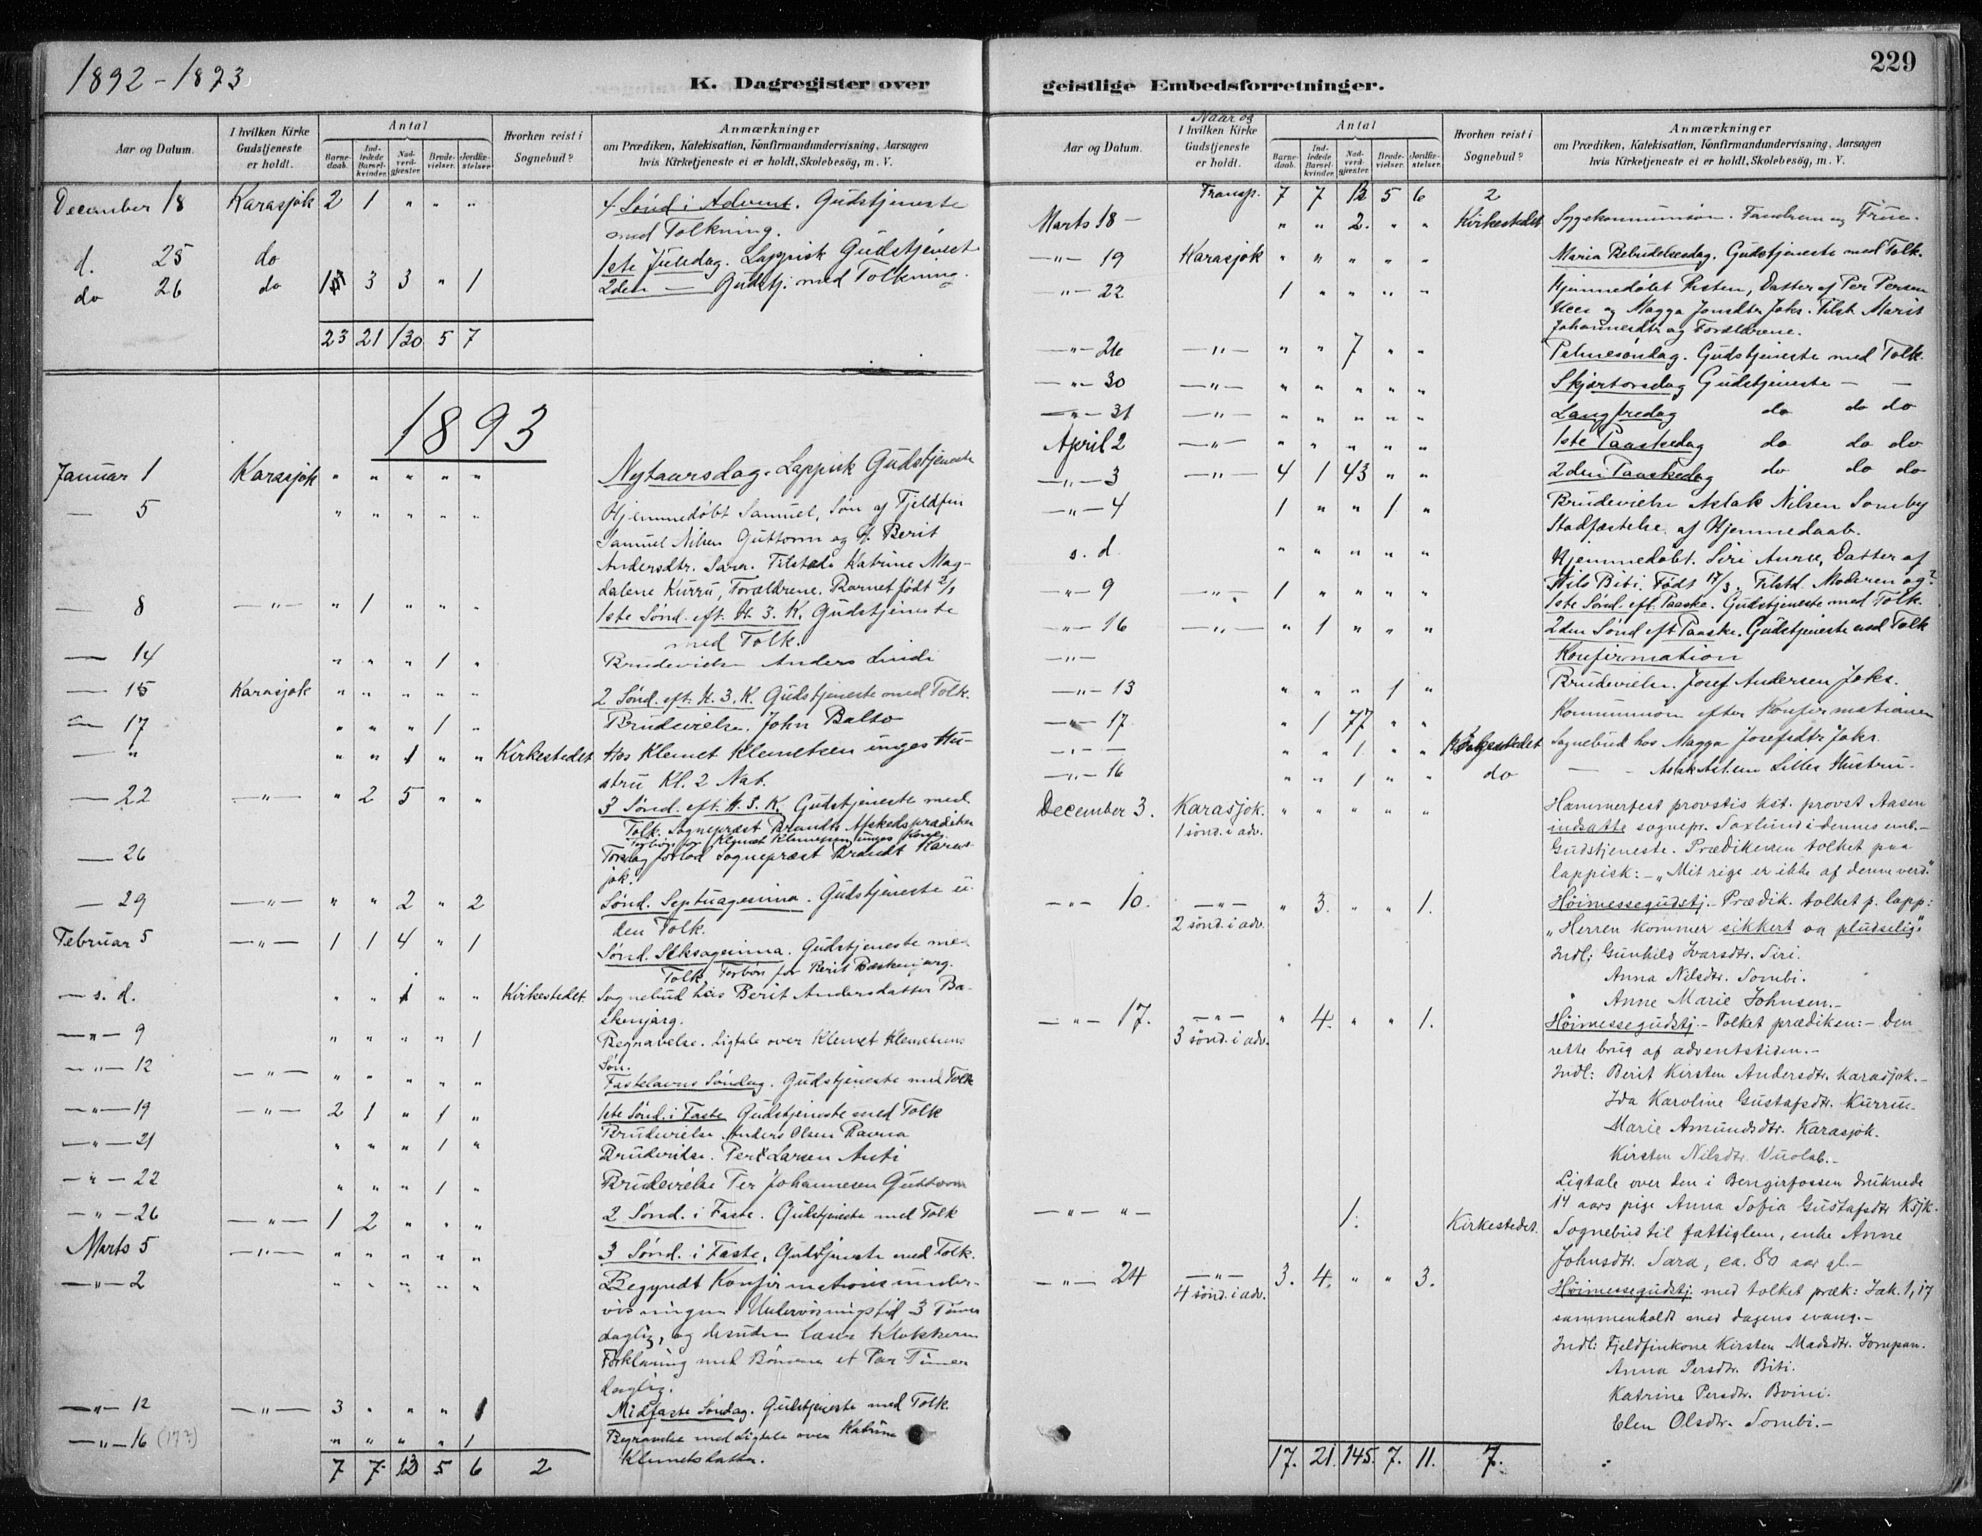 1892-1893
K. Dagregister over
Aar og Datum.
I hvilken Kirke Gudstjeneste er holdt.
Antal
Barnedaab.
Indledede Barselkvinder.
Nadverdgjæster.
Brudevielser.
Jordfæstelser.
Hvorhen reist i Sognebud?
Anmærkninger
om Prædiken, Katekisation, Konfirmandundervisning, Aarsagen
hvis Kirketjeneste ei er holdt, Skolebesøg, m. V.
December 18 Karasjok 2 1 " " " 4 Sønd i Advent. Gudstjeneste
med Tolkning.
d. 25 do 1ste Juledag. Lappisk Gudstjenest
do 26 do 3 3 " 1 2den — Gudstj. med Tolkning.
23 21 130 5 7
1893
Januar 1 Karasjok " " " " " Nytaarsdag. Lappisk Gudstjeneste
— 5 " " " " " Hjemmedøbt Samuel, Søn af Fjeldfin
Samuel Nilsen Guttorm og Berit
Andersdtr. Sara. Tilstede Katrine Mag-
dalene Kurru, Forældrene. Barnet født 2/1
— 8 —"— " 1 " " " 1ste Sønd. eft. H. 3. K. Gudstjeneste
med Tolk.
— 14 " " " 1 " Brudevielse Anders Lindi
— 15 Karasjok " " " " " 2 Sønd. eft. H. 3. K. Gudstjeneste med Tolk.
— 17 " " " 1 " Brudevielse. John Balto
— " " " 1 " " Kirkestedet Hos Klemet Klemetsen unges Hu-
stru Kl. 2 Nat.
— 22 —"— " 2 5 " " 3 Sønd. eft. H. 3. K. Gudstjeneste med
Tolk. Sognepræst Brandts Afskedsprædiken
Forbøn for Klemet Klemetsen unges Kone.
— 26 Torsdag forlod Sognepræst Brandt Karas-
jok.
— 29 —"— " " 2 " 2 Sønd. Septuagesima. Gudstjeneste u-
den Tolk.
Februar 5 —"— 1 1 4 " 1 Sønd. Seksagesima. Gudstjeneste med
Tolk. Forbøn for Berit Baskenjarg.
— s. d. " " 1 " " Kirkestedet. Sognebud hos Berit Andersdatter Ba-
skenjarg.
—"— 9 " " " " 1 Begravelse. Ligtale over Klemet Klemetsens
Søn.
—"— 12 —"— " " " " " Fastelavns Søndag. Gudstjeneste med Tolk
—"— 19 —"— 2 1 " 1 " 1ste Sønd. i Faste Gudstjeneste med Tolk
Brudevielse Anders Olsen Ravna
—"— 21 " " " 1 " Brudevielse. Per Larsen Anti
—"— 22 " " " 1 " Brudevielse Per Johannesen Guttorm
—"— 26 —"— 1 2 " " " 2 Sønd. i Faste. Gudstjeneste med Tolk
Marts 5 —"— " " " " " 3 Sønd. i Faste, Gudstjeneste med Tolk.
—"— 2 " " " " " Begyndt Konfirmationsunder-
visningen. Undervisningstid 3 Timer
daglig, og desuden læser Klokkeren
Forklaring med Børnene et Par Timer
daglig.
—"— 12 —"— 3 " " " 1 Midfaste Søndag. Gudstjeneste med Tolk.
—"— 16 (17?) " " " " 1 Begravelse med Ligtale over Katrine
Klemetsdatter.
7 7 13 5 6 2
229
geistlige Embedsforretninger.
Aar og Datum.
Naar og
I hvilken Kirke Gudstjeneste er holdt.
Antal
Barnedaab.
Indledede Barselkvinder.
Nadverdgjæster.
Brudevielser.
Jordfæstelser.
Hvorhen reist i Sognebud?
Anmærkninger
om Prædiken, Katekisation, Konfirmandundervisning, Aarsagen
hvis Kirketjeneste ei er holdt, Skolebesøg, m. V.
Transp. 7 7 13 5 6 2
Marts 18 — " " 2. " " Kirkestedet Sygekommunion. Fruen.
—"— 19 Karasjok " " " " " Maria Bebudelsesdag. Gudstjeneste med Tolk.
—"— 22 1 " " " " Hjemmedøbt Kirsten, Datter af Per Persen
og Magga Jonsdtr Joks. Tilst. Marit
Johannesdtr og Forældrene.
—"— 26 —"— " " 7 " " Palmesøndag. Gudstjeneste med Tolk.
—"— 30 —"— " " " " " Skjærtorsdag Gudstjeneste — —
—"— 31 —"— " " " " " Langfredag do do do
April 2 —"— " " " " " 1ste Paaskedag do do do
—"— 3 —"— 4 1 43 " " 2den Paaskedag do do do
—"— 4 1 " " 1 " Brudevielse Aslak Nilsen Somby
Stadfæstelse af Hjemmedaab.
s. d. " " " " " Hjemmedøbt. Siri Anne, Datter af
Nils Biti. Født 17/3. Tilstd. Moderen og ?
—"— 9 —"— 1 " " " " 1ste Sønd. eft. Paaske. Gudstjeneste med Tolk.
—"— 16 —"— " 1 " " " 2den Sønd eft Paaske. Gudstjeneste med Tolk
—"— Konfirmation
—"— 13 " " " 1 " Brudevielse. Josef Andersen Joks.
—"— 17 " 1 77 " " Kommunion efter Konfirmationen
—"— " " 1. " " Kirkestedet Sognebud hos Magga Josefsdtr Joks.
—"— 16 " " 1 " " do — Aslak Lilles Hustru.
December 3. Karasjok. " " " " " Hammerfest provstis kst. provst Aasen
1 sønd. i adv. indsatte sognepr. Saxlund i dennes emb.—
Gudstjeneste. Prædikenen tolket paa
lappisk: — „Mit rige er ikke af denne verd."
—"— 10. —"— " 3. " " 1. Høimessegudstj.— Prædik. tolket p. lapp:
2 sønd. i adv. „Herren kommer sikkert og pludselig".
Indl: Gunhild Ivarsdtr. Siri.
Anna Nilsdtr. Sombi.
Anne Marie Johnsen.—
—"— 17. —"— " 4. " " 1. Høimessegudstj.— Tolket prædiken: — Den
3 sønd. i adv. rette brug af adventstiden.—
Indl: Berit Kirsten Andersdtr. Karasjok.—
Ida Karoline Gustafsdtr. Kurru.—
Marie Amundsdtr. Karasjok.
Kirsten Nilsdtr. Vuolab.—
Ligtale over den i Bengirfossen druknede
14 aars pige Anna Sofia Gustafsdtr Ksjk.
—"— " 1. Kirkestedet. Sognebud til fattiglem, enke Anne
Johnsdtr. Sara, ca. 80 aar gl.—
—"— 24 —"— 3. 4. " " 3. Høimessegudstj: med tolket præk: Jak. 1,17
4 sønd. i adv. sammenholdt med dagens evang.—
Indl: Fjeldfinkone Kirsten Madsdtr.
Anna Persdtr. Biti.
Katrine Persdtr. Boini.
Elen Olsdtr. Sombi.—
17. 21. 145. 7. 11. 7.